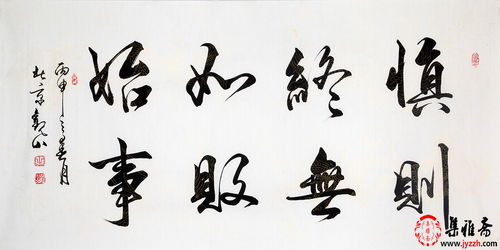 慎終如始
則無敗事
丙申之春月
集雅斋
www.jyzzh.com